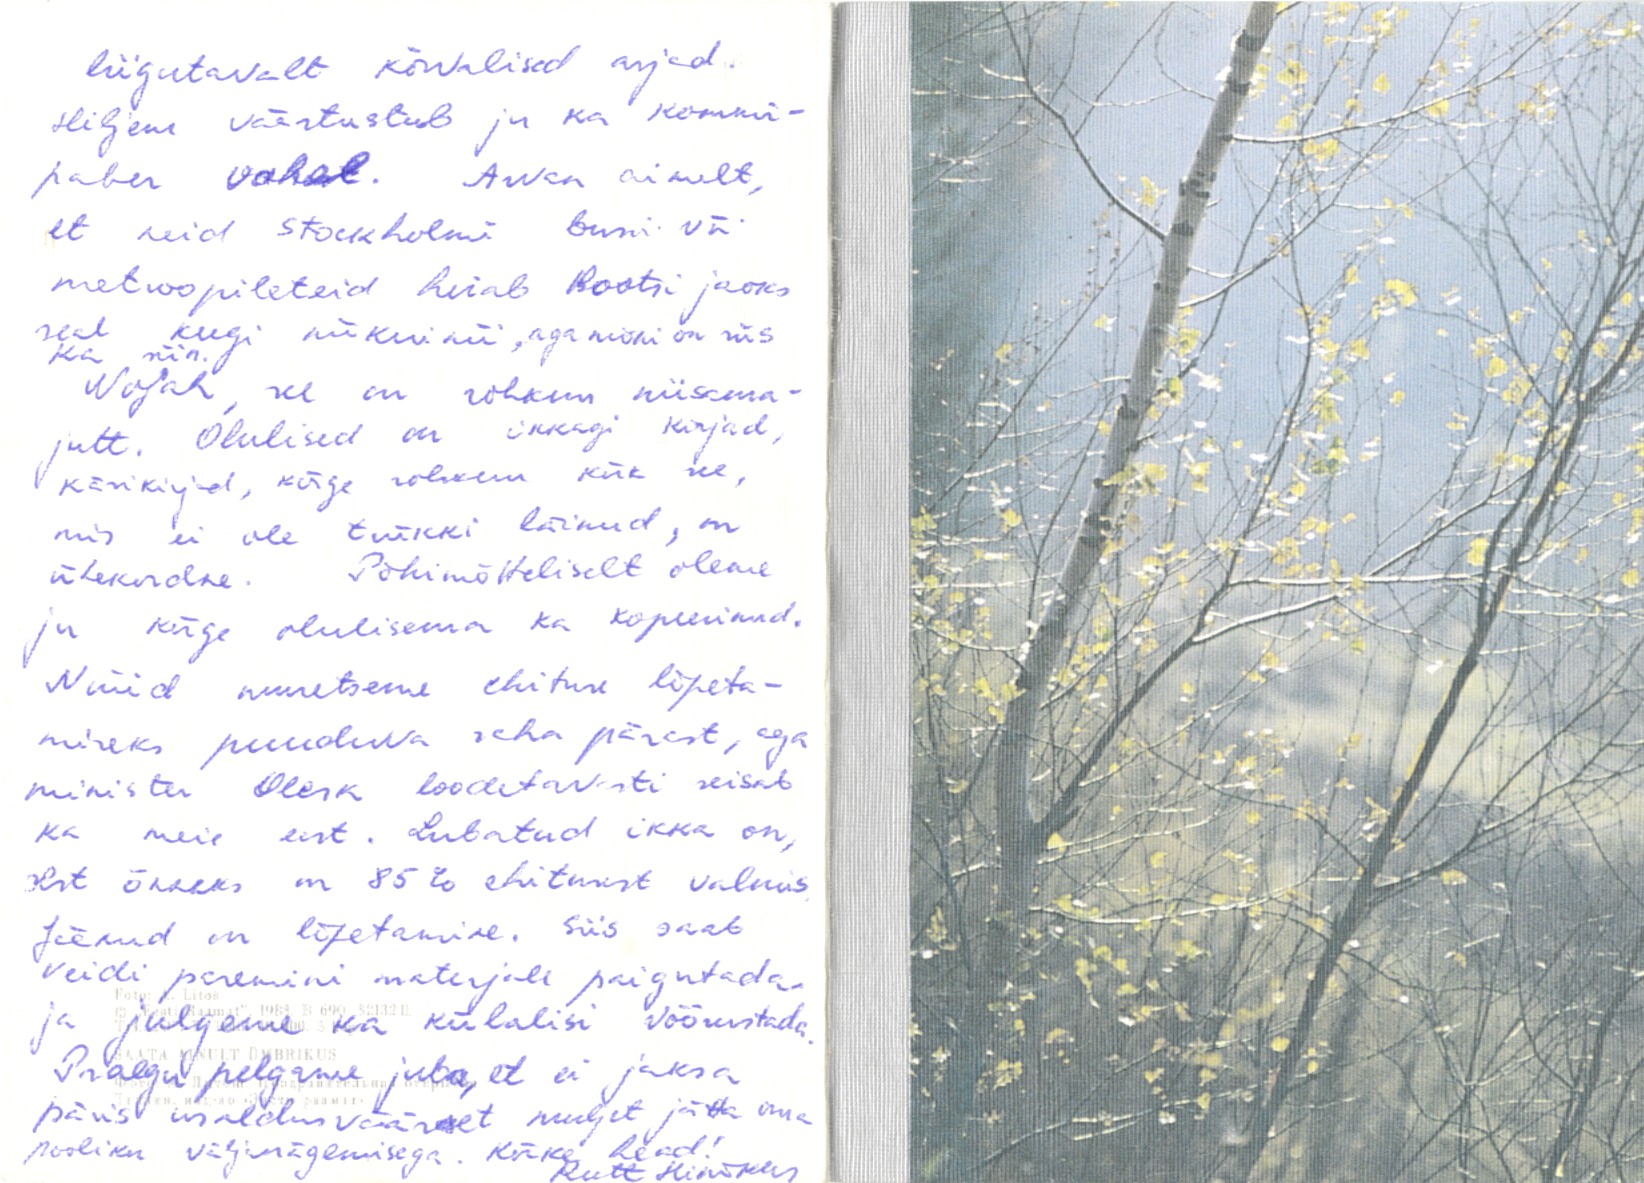 liigutavalt kõrvalised asjad.
Hiljem väärtustub ju ka kommi-
paber vahel. Arvan ainult,
et neid Stockholmi bussi või
metroopileteid hoiab Rootsi jaoks
seal keegi niikuinii, aga mõni on siis
ka siin.
Nojah, see on rohkem niisama-
jutt. Olulised on ikkagi kirjad,
käsikirjad, kõige rohkem kõik see,
mis ei ole trükki läinud, on
ühekordne. Põhimõtteliselt oleme
ju kõige olulisema ka kopeerinud.
Nüüd muretseme ehituse lõpeta-
miseks puuduva raha pärast, aga
minister Olesk loodetavasti seisab
ka meie eest. Lubatud ikka on,
sest õnneks on 85% ehitusest valmis.
Jäänud on lõpetamine. Siis saab
veidi paremini materjale paigutada
ja julgeme ka külalisi võõrustada.
Praegu pelgame juba, et ei jaksa
päris usaldusväärset muljet jätta oma
pooliku väljanägemisega. Kõike head!
Rutt Hinrikus
Foto: A. Litos
© "Eesti Raamat", 1984. B 690.
SAATA AINULT ÜMBRIKUS